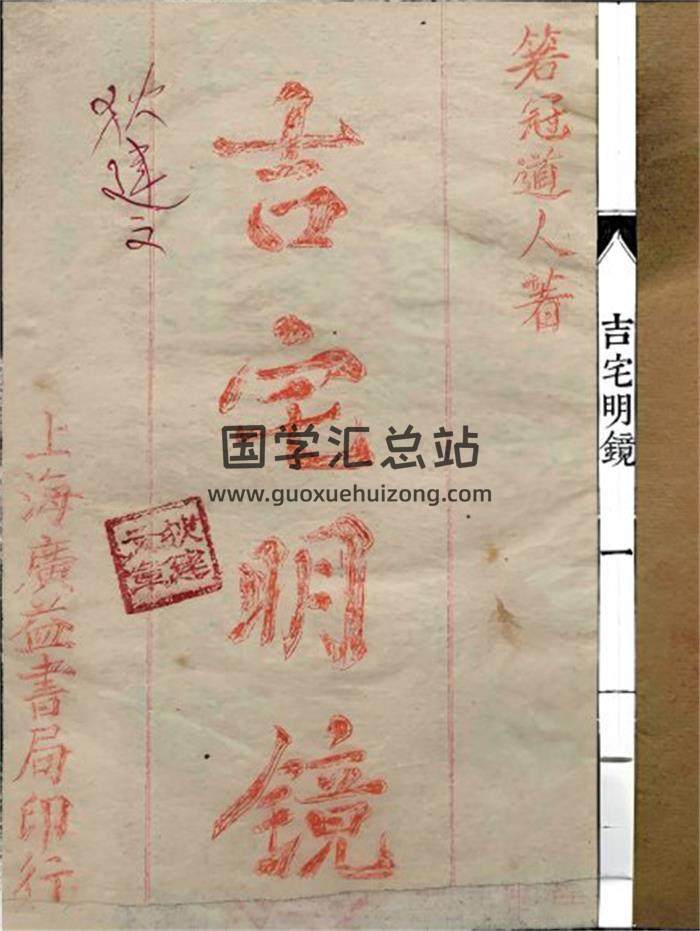 箬冠道人著
吉宅明鏡
狄建文
狄建
文章
上海廣益書局印行
吉宅明鏡
一
一
国学汇总站
www.guoxuehuizong.com